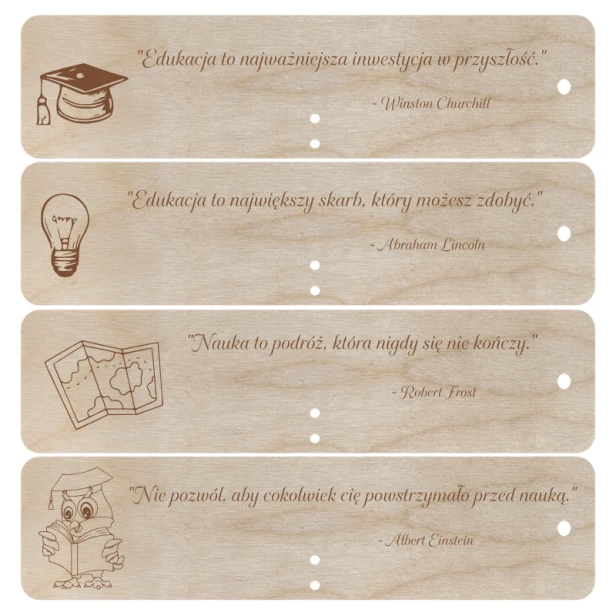 "Edukacja to najważniejsza inwestycja w przyszłość."
- Winston Churchill
"Edukacja to największy skarb, który możesz zdobyć."
- Abraham Lincoln
"Nauka to podróż, która nigdy się nie kończy."
- Robert Frost
"Nie pozwól, aby cokolwiek cię powstrzymało przed nauką."
- Albert Einstein